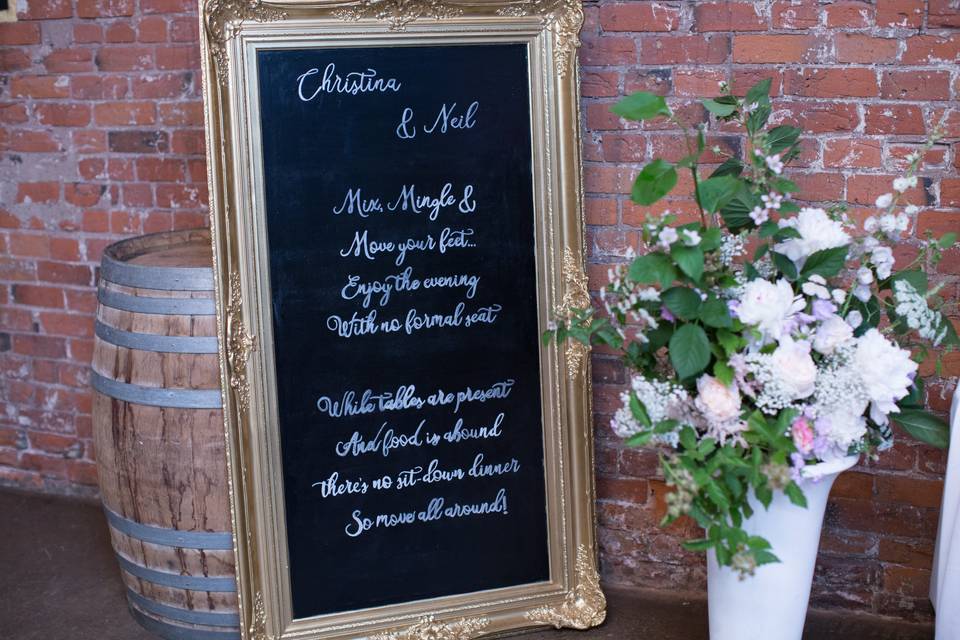 Christina
& Neil
Mix, Mingle &
Move your feet...
Enjoy the evening
With no formal seat
While tables are present
And food is abound
there's no sit-down dinner
So move all around!